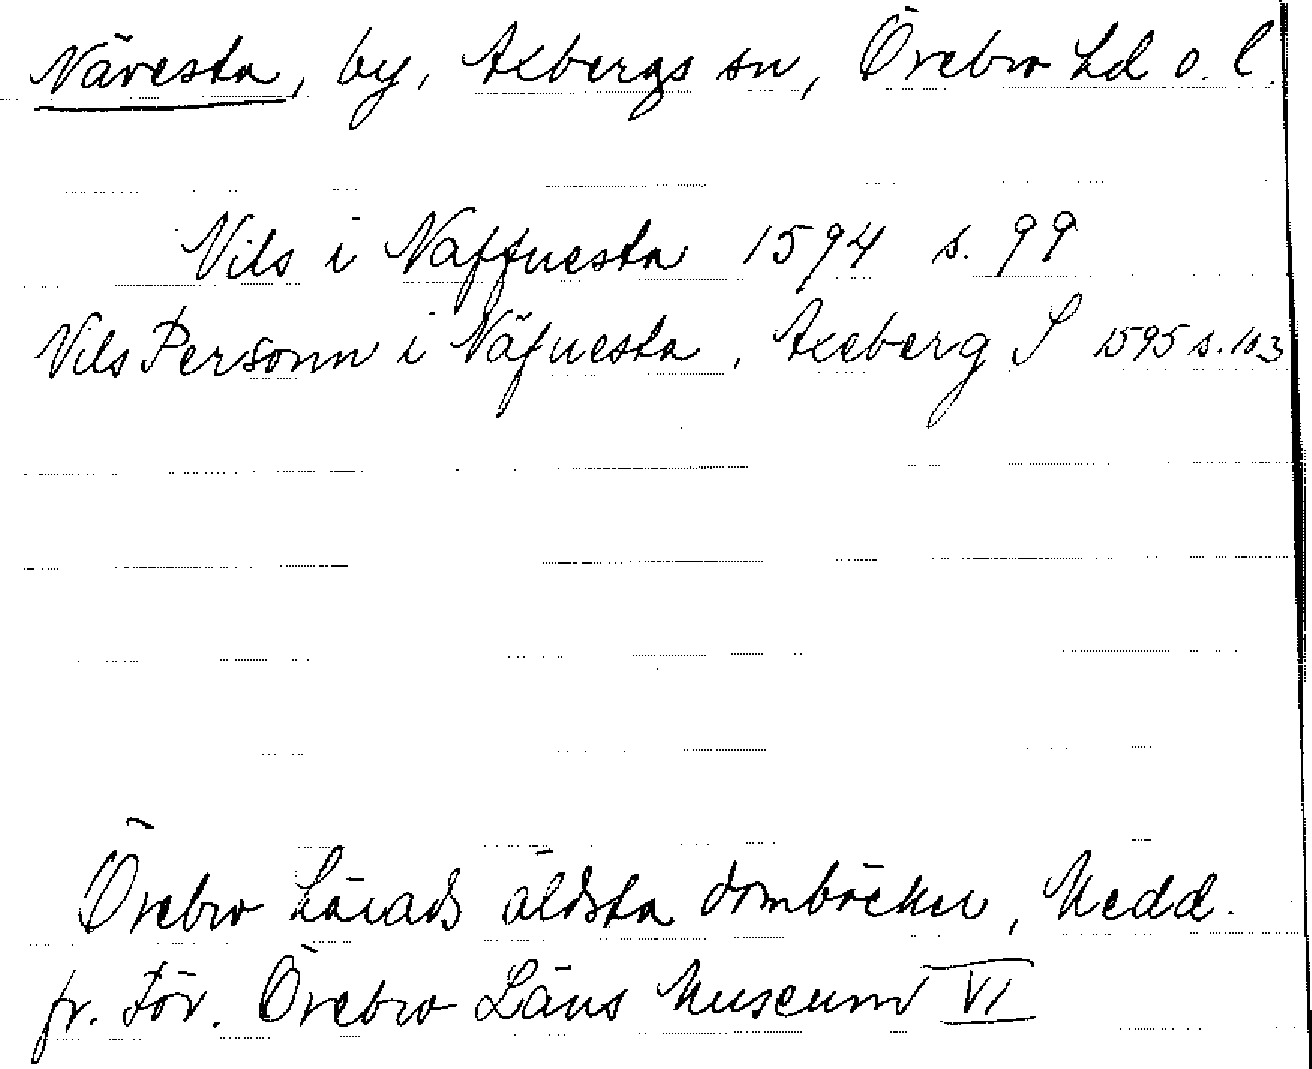 Nävesta, by, Axbergs sn, Örebro hd o. l.
Nils i Naffuesta 1594 s. 99
Nils Personn i Näfuesta, Axeberg S 1595 s. 103
Örebro härads äldsta domböcker, Medd.
fr. För. Örebro Läns Museum VI